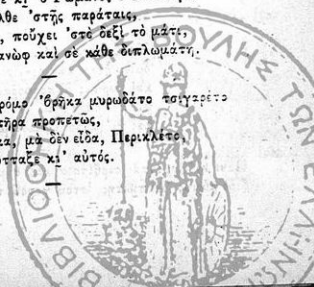 λθε 'στῆς παράταις,
, πούχει 'στὸ δεξὶ τὸ μάτι,
ανὼφ καὶ σὲ κάθε διπλωμάτη.
ρόμο 'βρῆκα μυρωδάτο τσιγαρέτο
τῆρα προπετῶς,
κα, μὰ δὲν εἶδα, Περικλέτο,
ότταξε κι' αὐτός.
ΒΙΒΛΙΟΘΗ ΤΗΣ ΒΟΥΛΗΣ ΤΩΝ ΕΛΛΗΝΩ